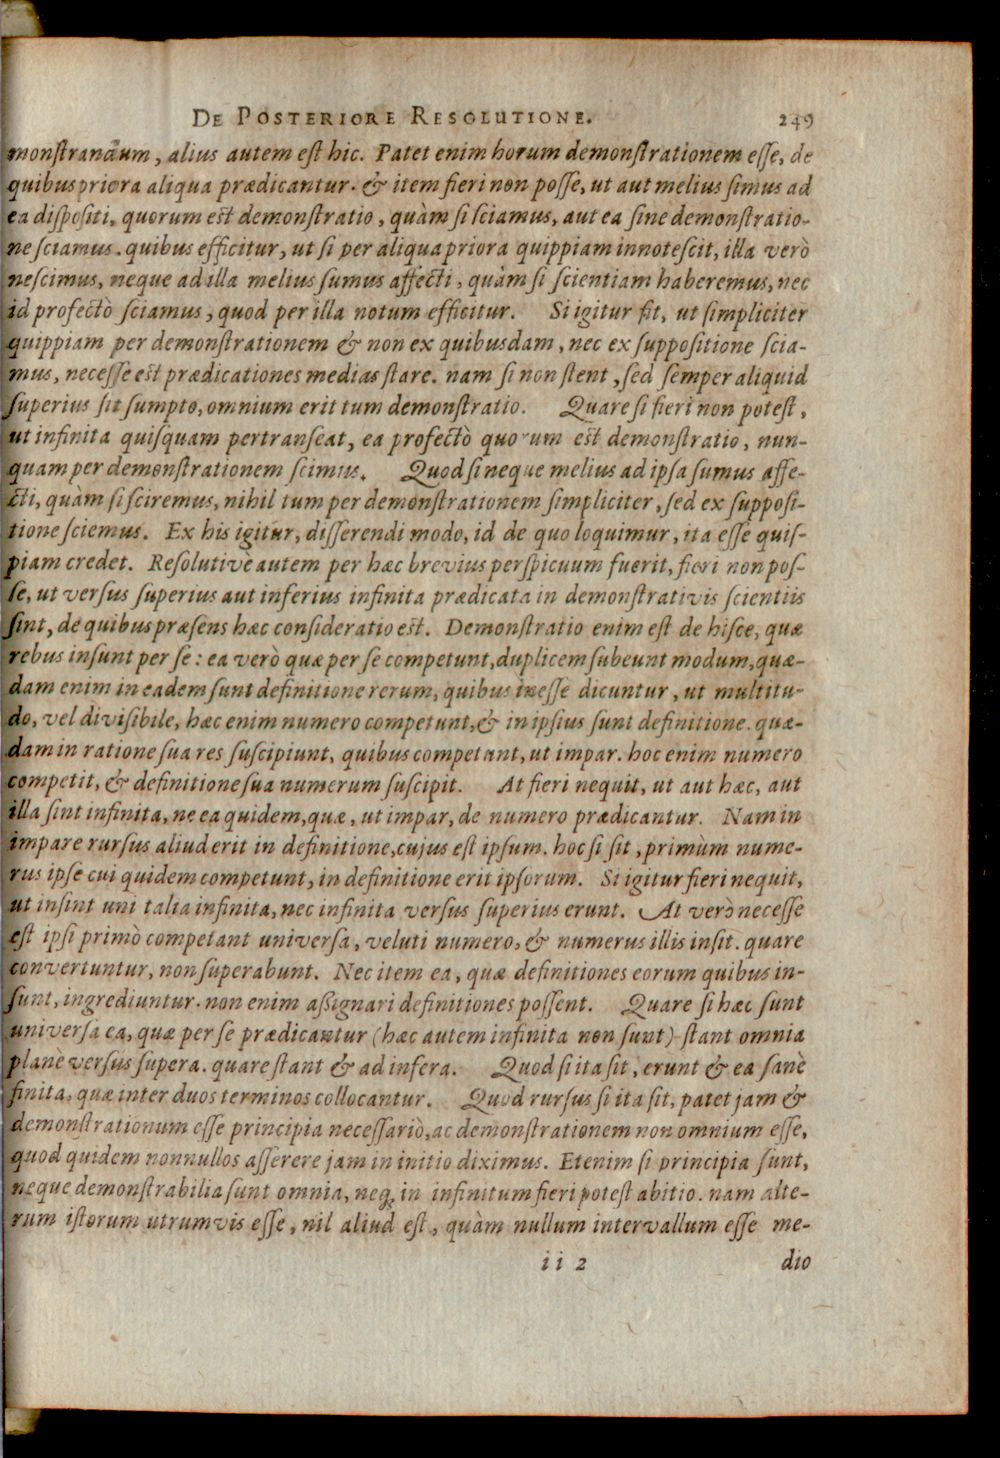 DE POSTERIORE RESOLUTIONE. 249
monstrandum, alius autem est hic. Patet enim horum demonstrationem esse, de
quibus priora aliqua prædicantur. & item fieri non posse, ut aut melius simus ad
ea dispositi, quorum est demonstratio, quàm si sciamus, aut ea sine demonstratio-
ne sciamus. quibus efficitur, ut si per aliqua priora quippiam innotescit, illa verò
nescimus, neque ad illa melius sumus affecti, quàm si scientiam haberemus, nec
id profectò sciamus, quod per illa notum efficitur. Si igitur fit, ut simpliciter
quippiam per demonstrationem & non ex quibusdam, nec ex suppositione scia-
mus, necesse est prædicationes medias stare. nam si non stent, sed semper aliquid
superius sit sumpto, omnium erit tum demonstratio. Quare si fieri non potest,
ut infinita quisquam pertranseat, ea profectò quorum est demonstratio, nun-
quam per demonstrationem scimus. Quod si neque melius ad ipsa sumus affe-
cti, quàm si sciremus, nihil tum per demonstrationem simpliciter, sed ex supposi-
tione sciemus. Ex his igitur, disserendi modo, id de quo loquimur, ita esse quis-
piam credet. Resolutivè autem per hæc brevius perspicuum fuerit, fieri non pos-
se, ut versus superius aut inferius infinita prædicata in demonstrativis scientiis
sint, de quibus præsens hæc consideratio est. Demonstratio enim est de hisce, quæ
rebus insunt per se: ea verò quæ per se competunt, duplicem subeunt modum, quæ-
dam enim in eadem sunt definitione rerum, quibus inesse dicuntur, ut multitu-
do, vel divisibile, hæc enim numero competunt, & in ipsius sunt definitione. quæ-
dam in ratione sua res suscipiunt, quibus competunt, ut impar. hoc enim numero
competit, & definitione sua numerum suscipit. At fieri nequit, ut aut hæc, aut
illa sint infinita, ne ea quidem, quæ, ut impar, de numero prædicantur. Nam in
impare rursus aliud erit in definitione, cujus est ipsum. hoc si sit, primùm nume-
rus ipse cui quidem competunt, in definitione erit ipsorum. Si igitur fieri nequit,
ut insint uni talia infinita, nec infinita versus superius erunt. At verò necesse
est ipsi primò competant universa, veluti numero, & numerus illis insit. quare
convertuntur, non superabunt. Nec item ea, quæ definitiones eorum quibus in-
sunt, ingrediuntur. non enim assignari definitiones possent. Quare si hæc sunt
universa ea, quæ per se prædicantur (hæc autem infinita non sunt) stant omnia
planè versus supera. quare stant & ad infera. Quod si ita sit, erunt & ea sanè
finita, quæ inter duos terminos collocantur. Quod rursus si ita sit, patet jam &
demonstrationum esse principia necessariò, ac demonstrationem non omnium esse,
quod quidem nonnullos asserere jam in initio diximus. Etenim si principia sunt,
neque demonstrabilia sunt omnia, neq; in infinitum fieri potest abitio. nam alte-
rum istorum utrumvis esse, nil aliud est, quàm nullum intervallum esse me-
ii 2 dio